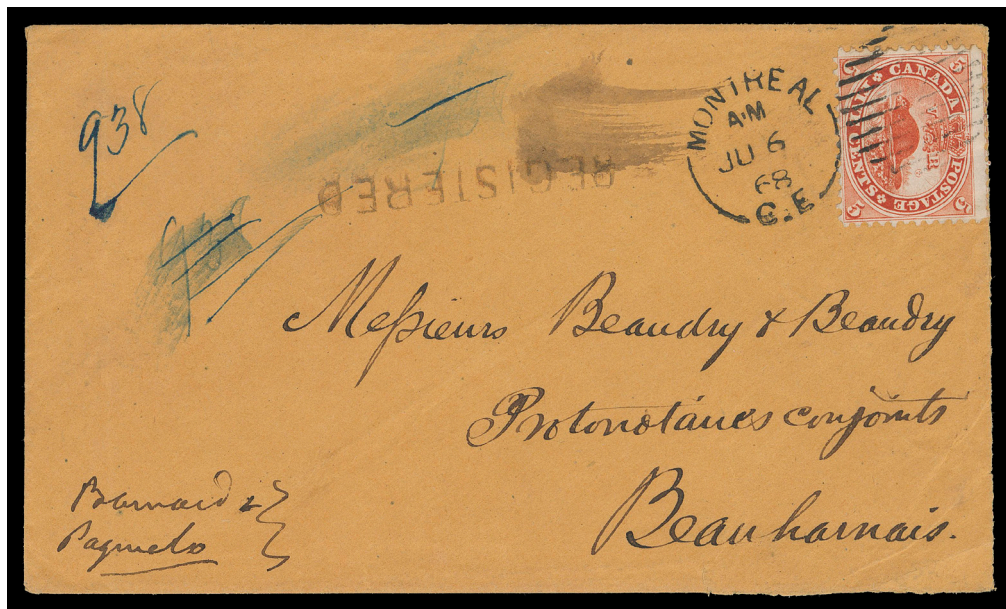 938
REGISTERED
MONTREAL
A·M
JU 6
68
C.E
CANADA POSTAGE
FIVE CENTS
5
5
5
5
V R
Messieurs Beaudry & Beaudry
Protonotaires conjoints
Beauharnais.
Barnard &
Pagnuelo